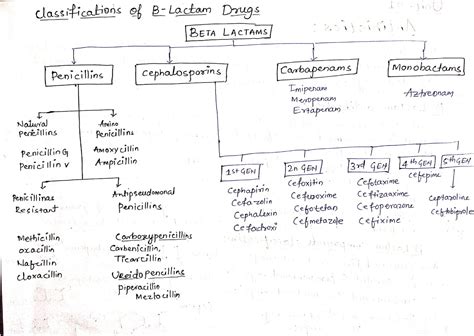 Classifications of B-Lactam Drugs
BETA LACTAMS
Penicillins
Cephalosporins
Carbapenams
Monobactams
Imipenam
Meropenam
Ertapenam
Aztreonam
Natural
Penicillins
Penicillin G
Penicillin V
Amino
Penicillins
Amoxycillin
Ampicillin
Penicillinas
Resistant
Methicillin
oxacillin
Nafcillin
cloxacillin
Antipseudomonal
Penicillins
Carboxypenicillins
Carbenicillin,
Ticarcillin
Ureidopencillins
piperacillin
Mezlocillin
1st GEN
Cephapirin
Cefazolin
Cephalexin
Cefachroxi
2n GEN
Cefoxitin
Cefuroxime
Cefotetan
Cefmetazole
3rd GEN
Cefotaxime
Ceftizoxime
Cefoperazone
Cefixime
4th GEN
Cefepime
5th GEN
Ceptaroline
Ceftobiprole